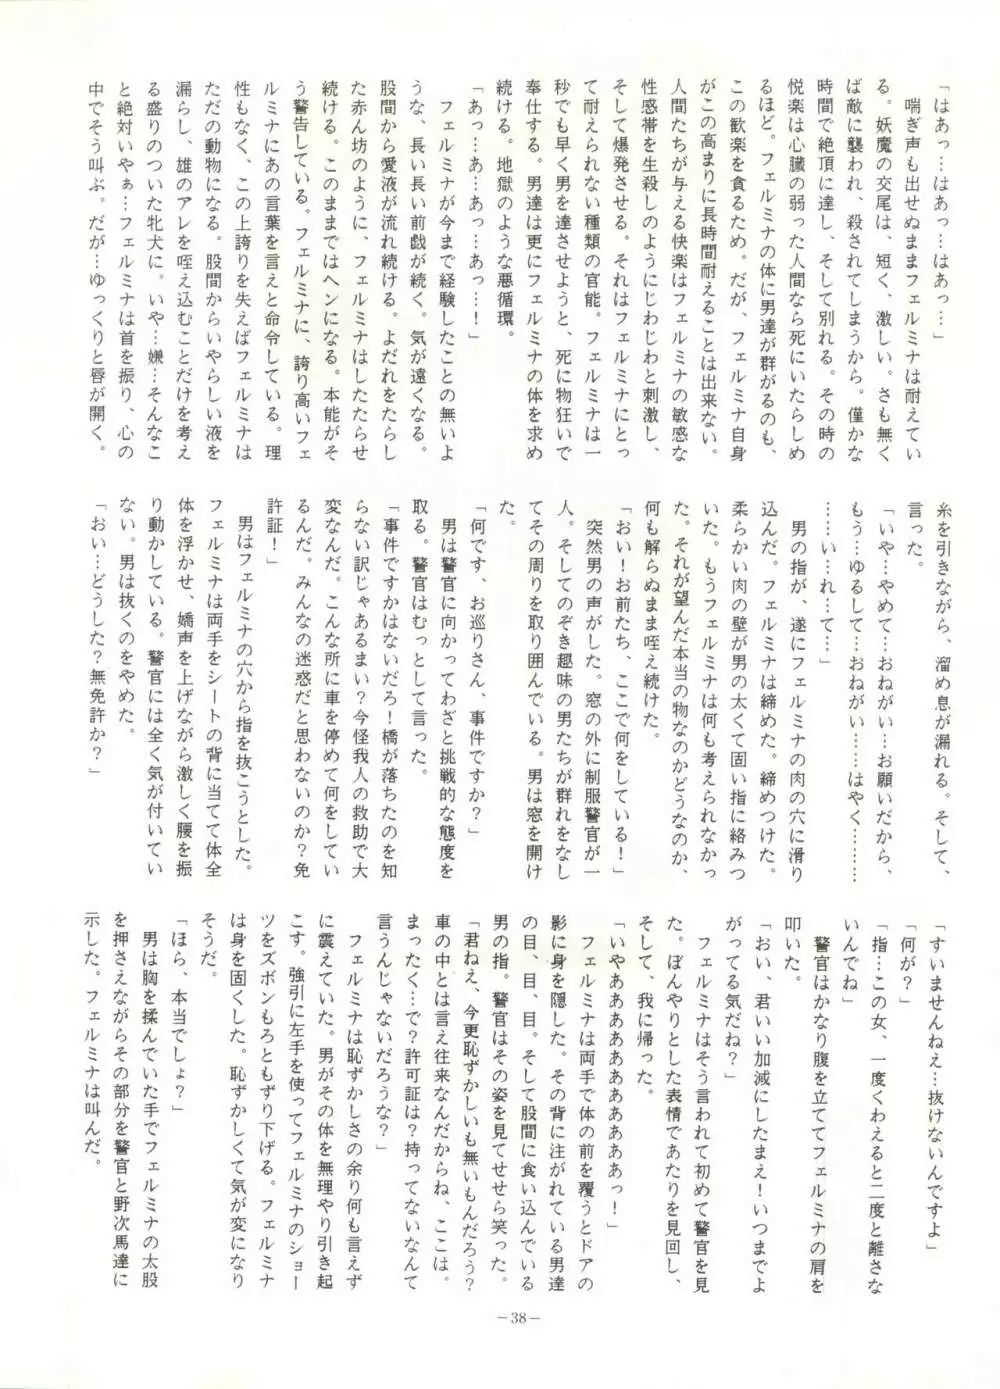 「はあっ…はあっ…はあっ…」
　喘ぎ声も出せぬままフェルミナは耐えてい
る。妖魔の交尾は、短く、激しい。さも無く
ば敵に襲われ、殺されてしまうから。僅かな
時間で絶頂に達し、そして別れる。その時の
悦楽は心臓の弱った人間なら死にいたらしめ
るほど。フェルミナの体に男達が群がるのも、
この歓楽を貪るため。だが、フェルミナ自身
がこの高まりに長時間耐えることは出来ない。
人間たちが与える快楽はフェルミナの敏感な
性感帯を生殺しのようにじわじわと刺激し、
そして爆発させる。それはフェルミナにとっ
て耐えられない種類の官能。フェルミナは一
秒でも早く男を達させようと、死に物狂いで
奉仕する。男達は更にフェルミナの体を求め
続ける。地獄のような悪循環。
「あっ…あ…あっ…あっ…！」
　フェルミナが今まで経験したことの無いよ
うな、長い長い前戯が続く。気が遠くなる。
股間から愛液が流れ続ける。よだれをたらし
た赤ん坊のように、フェルミナはしたたらせ
続ける。このままではヘンになる。本能がそ
う警告している。フェルミナに、誇り高いフェ
ルミナにあの言葉を言えと命令している。理
性もなく、この上誇りを失えばフェルミナは
ただの動物になる。股間からいやらしい液を
漏らし、雄のアレを咥え込むことだけを考え
る盛りのついた牝犬に。いや…嫌…そんなこ
と絶対いやぁ…フェルミナは首を振り、心の
中でそう叫ぶ。だが…ゆっくりと唇が開く。
糸を引きながら、溜め息が漏れる。そして、
言った。
「いや…やめて…おねがい…お願いだから、
もう…ゆるして…おねがい……はやく………
……い…れ…て…」
　男の指が、遂にフェルミナの肉の穴に滑り
込んだ。フェルミナは締めた。締めつけた。
柔らかい肉の壁が男の太くて固い指に絡みつ
いた。もうフェルミナは何も考えられなかっ
た。それが望んだ本当の物なのかどうなのか、
何も解らぬまま咥え続けた。
「おい！お前たち、ここで何をしている！」
　突然男の声がした。窓の外に制服警官が一
人。そしてのぞき趣味の男たちが群れをなし
てその周りを取り囲んでいる。男は窓を開け
た。
「何です、お巡りさん、事件ですか？」
　男は警官に向かってわざと挑戦的な態度を
取る。警官はむっとして言った。
「事件ですかはないだろ！橋が落ちたのを知
らない訳じゃあるまい？今怪我人の救助で大
変なんだ。こんな所に車を停めて何をしてい
るんだ。みんなの迷惑だと思わないのか？免
許証！」
　男はフェルミナの穴から指を抜こうとした。
フェルミナは両手をシートの背に当てて体全
体を浮かせ、嬌声を上げながら激しく腰を振
り動かしている。警官には全く気が付いてい
ない。男は抜くのをやめた。
「おい…どうした？無免許か？」
「すいませんねえ…抜けないんですよ」
「何が？」
「指…この女、一度くわえると二度と離さな
いんでね」
　警官はかなり腹を立ててフェルミナの肩を
叩いた。
「おい、君いい加減にしたまえ！いつまでよ
がってる気だね？」
　フェルミナはそう言われて初めて警官を見
た。ぼんやりとした表情であたりを見回し、
そして、我に帰った。
「いやああああああああああああっ！」
　フェルミナは両手で体の前を覆うとドアの
影に身を隠した。その背に注がれている男達
の目、目、目。そして股間に食い込んでいる
男の指。警官はその姿を見てせせら笑った。
「君ねえ、今更恥ずかしいも無いもんだろう？
車の中とは言え往来なんだからね、ここは。
まったく…で？許可証は？持ってないなんて
言うんじゃないだろうな？」
　フェルミナは恥ずかしさの余り何も言えず
に震えていた。男がその体を無理やり引き起
こす。強引に左手を使ってフェルミナのショー
ツをズボンもろともずり下げる。フェルミナ
は身を固くした。恥ずかしくて気が変になり
そうだ。
「ほら、本当でしょ？」
　男は胸を揉んでいた手でフェルミナの太股
を押さえながらその部分を警官と野次馬達に
示した。フェルミナは叫んだ。
－38－